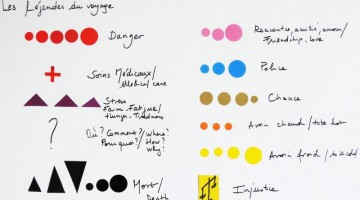 Les Légendes du voyage
Danger
Soins Médicaux/
Medical care
Stress
Faim. Fatigue/
Hunger. Tiredness
?
Où? Comment?/Where?
Pourquoi?/How?
why?
Mort/
Death
Rencontre, amitié, amour/
Friendship, love
Police
Chance
Avoir chaud/
Avoir froid/
Injustice